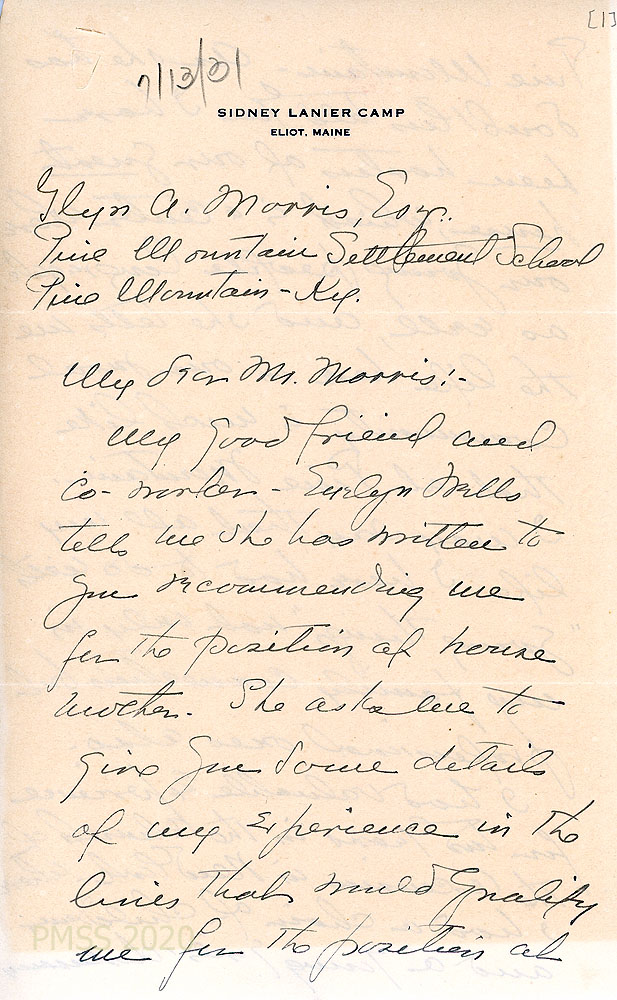 [1]
7/13/31
SIDNEY LANIER CAMP
ELIOT, MAINE
Glyn A. Morris, Esq.
Pine Mountain Settlement School
Pine Mountain - Ky.
My dear Mr. Morris:-
My good friend and
co-worker - Evelyn Wells
tells me she has written to
you recommending me
for the position of house
mother. She asks me to
give you some details
of my experience in the
lines that would qualify
me for the position at
PMSS 2020